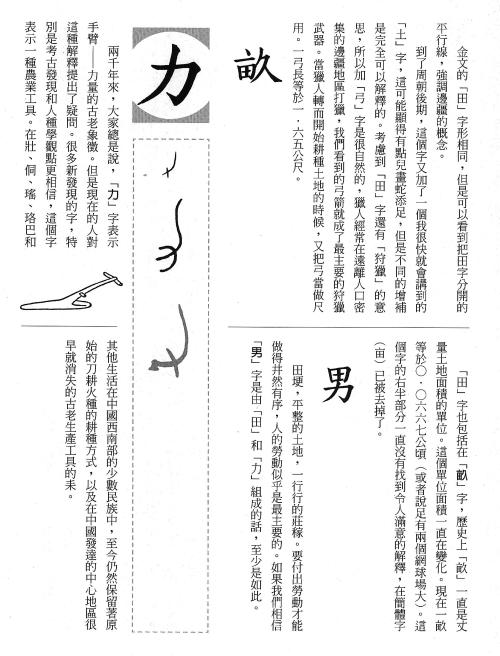 金文的「田」字形相同，但是可以看到把田字分開的
平行線，強調邊疆的概念。
到了周朝後期，這個字又加了一個我很快就會講到的
「土」字，這可能顯得有點兒畫蛇添足，但是不同的增補
是完全可以解釋的。考慮到「田」字還有「狩獵」的意
思，所以加「弓」字是很自然的，獵人經常在遠離人口密
集的邊疆地區打獵，我們看到的弓箭就成了最主要的狩獵
武器。當獵人轉而開始耕種土地的時候，又把弓當做尺
用。一弓長等於一．六五公尺。
畝
「田」字也包括在「畝」字，歷史上「畝」一直是丈
量土地面積的單位。這個單位面積一直在變化。現在一畝
等於○．○六六七公頃（或者說足有兩個網球場大）。這
個字的右半部分一直沒有找到令人滿意的解釋，在簡體字
（亩）已被去掉了。
男
田埂，平整的土地，一行行的莊稼。要付出勞動才能
做得井然有序，人的勞動似乎是最主要的。如果我們相信
「男」字是由「田」和「力」組成的話，至少是如此。
力
兩千年來，大家總是說，「力」字表示
手臂——力量的古老象徵。但是現在的人對
這種解釋提出了疑問。很多新發現的字，特
別是考古發現和人種學觀點更相信，這個字
表示一種農業工具。在壯、侗、瑤、珞巴和
其他生活在中國西南部的少數民族中，至今仍然保留著原
始的刀耕火種的耕種方式，以及在中國發達的中心地區很
早就消失的古老生產工具的耒。